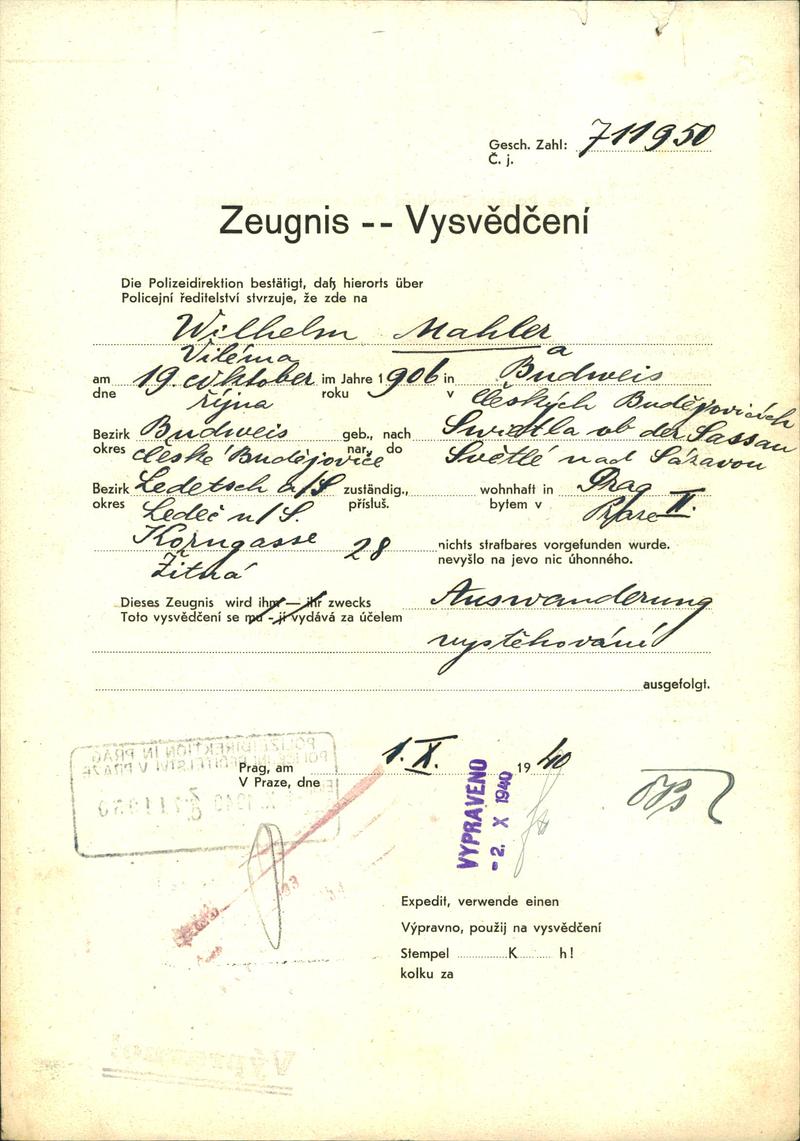 Gesch. Zahl: 711950
Č. j.
Zeugnis -- Vysvědčení
Die Polizeidirektion bestätigt, daß hierorts über
Policejní ředitelství stvrzuje, že zde na
Wilhelm Mahler
Viléma a
am 19. Oktober im Jahre 1906 in Budweis
dne října roku v Českých Budějovicích
Bezirk Budweis geb., nach Swietla ob der Sassau
okres České Budějovice nar., do Světlé nad Sázavou
Bezirk Ledetsch a/S zuständig., wohnhaft in Prag II.
okres Ledeč n/S. přísluš. bytem v Praze
Korngasse 28 nichts strafbares vorgefunden wurde.
Žitná nevyšlo na jevo nic úhonného.
Dieses Zeugnis wird ihm — ihr zwecks Auswanderung
Toto vysvědčení se mu - jí vydává za účelem
vystěhování
ausgefolgt.
POLIZEIDIREKTION IN PRAG
POLICEJNÍ ŘEDITELSTVÍ V PRAZE
1940
711950
Prag, am 1. X. 1940
V Praze, dne
VYPRAVENO
- 2. X 1940
Expedit, verwende einen
Výpravno, použij na vysvědčení
Stempel K h!
kolku za